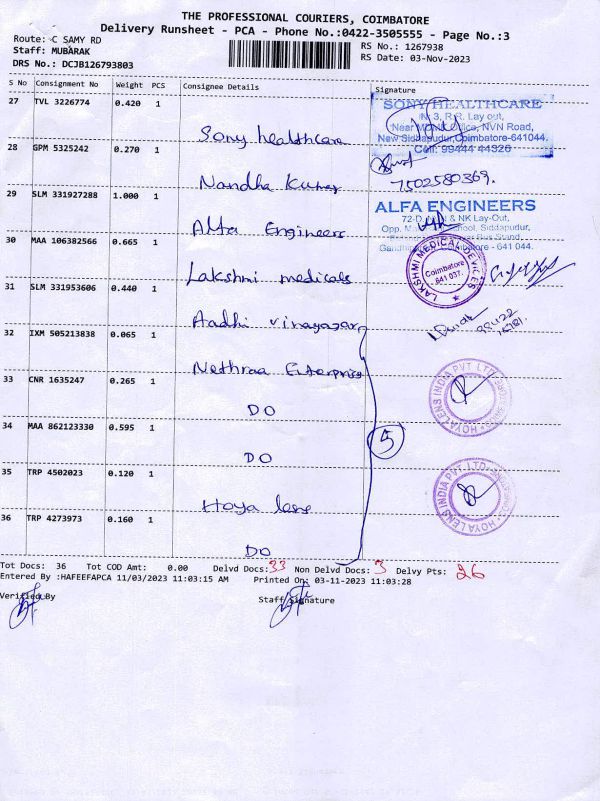 THE PROFESSIONAL COURIERS, COIMBATORE
Delivery Runsheet - PCA - Phone No.:0422-3505555 - Page No.:3
Route: C SAMY RD
Staff: MUBARAK
DRS No.: DCJB126793803
RS No.: 1267938
RS Date: 03-Nov-2023
S No Consignment No Weight PCS Consignee Details Signature
27 TVL 3226774 0.420 1
Sony healthcare
SONY HEALTHCARE
Nr 3, R.R. Lay out,
Office, NVN Road,
New Siddapudur, Coimbatore-641044.
Cell: 99444 44326
28 GPM 5325242 0.270 1
Nandha Kumar
7502580369.
29 SLM 331927288 1.000 1
Alfa Engineers
ALFA ENGINEERS
& NK Lay-Out,
School, Siddapudur,
Bus Stand,
Coimbatore - 641 044.
30 MAA 106382566 0.665 1
Lakshmi medicals
LAKSHMI MEDICAL DEVICES
Coimbatore
641 037.
31 SLM 331953606 0.440 1
Aadhi vinayagar
32 IXM 505213838 0.065 1
Nethraa Enterprises
33 CNR 1635247 0.265 1
DO
HOYA LENS INDIA PVT LTD
34 MAA 862123330 0.595 1
DO
5
35 TRP 4502023 0.120 1
Hoya lens
HOYA LENS INDIA PVT. LTD.
36 TRP 4273973 0.160 1
DO
Tot Docs: 36 Tot COD Amt: 0.00 Delvd Docs: 33 Non Delvd Docs: 3 Delvy Pts: 26
Entered By :HAFEEFAPCA 11/03/2023 11:03:15 AM Printed On: 03-11-2023 11:03:28
Verified By Staff Signature